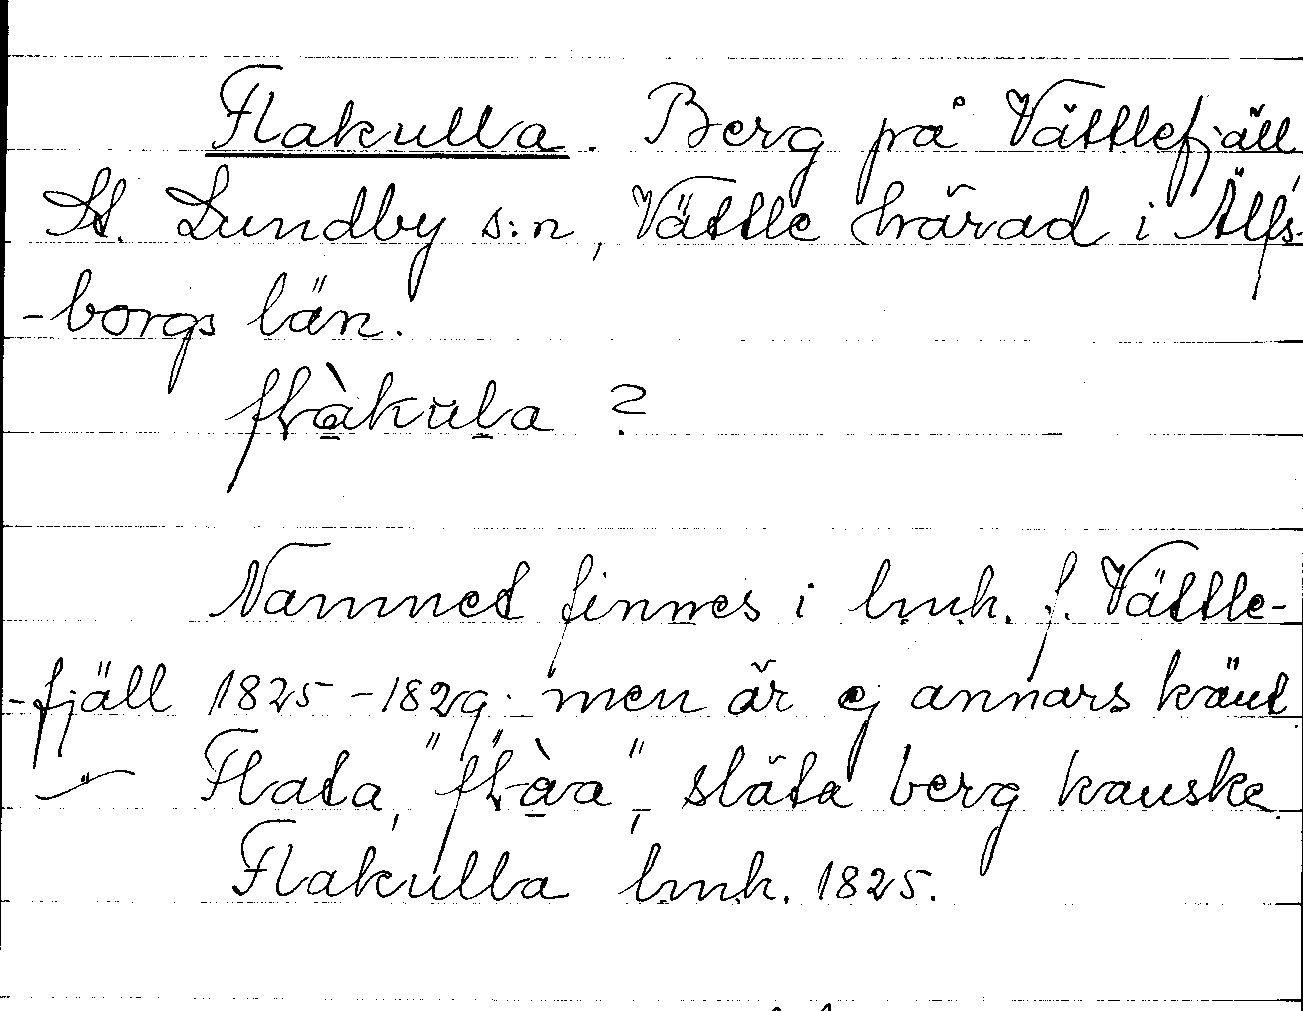 Flakulla. Berg på Vättlefjäll,
St. Lundby s:n, Vättle härad i Älfs-
-borgs län.
flàkula ?
Namnet finnes i lmk. f. Vättle-
-fjäll 1825-1829. men är ej annars känt.
Flata, "flàa", släta berg kanske.
Flakulla lmk. 1825.